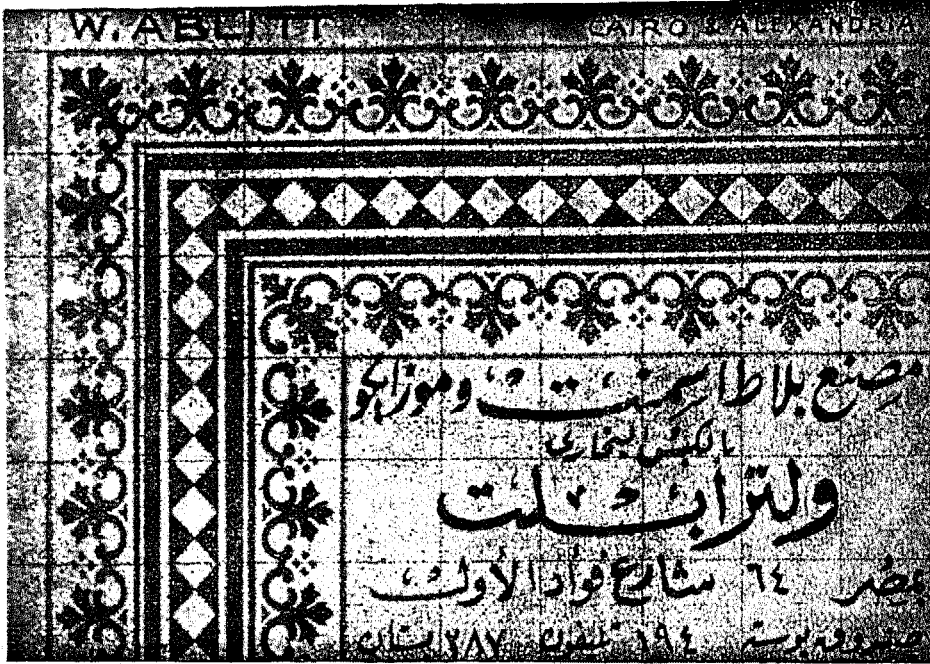 W. ABLITT CAIRO & ALEXANDRIA
مصنع بلاط اسمنت وموزايكو
بالكبس البخارى
ولتر ابلت
بمصر ٦٤ شارع فؤاد الأول
صندوق بوسته ١٩٤ تليفون ٢٨٧ بستان